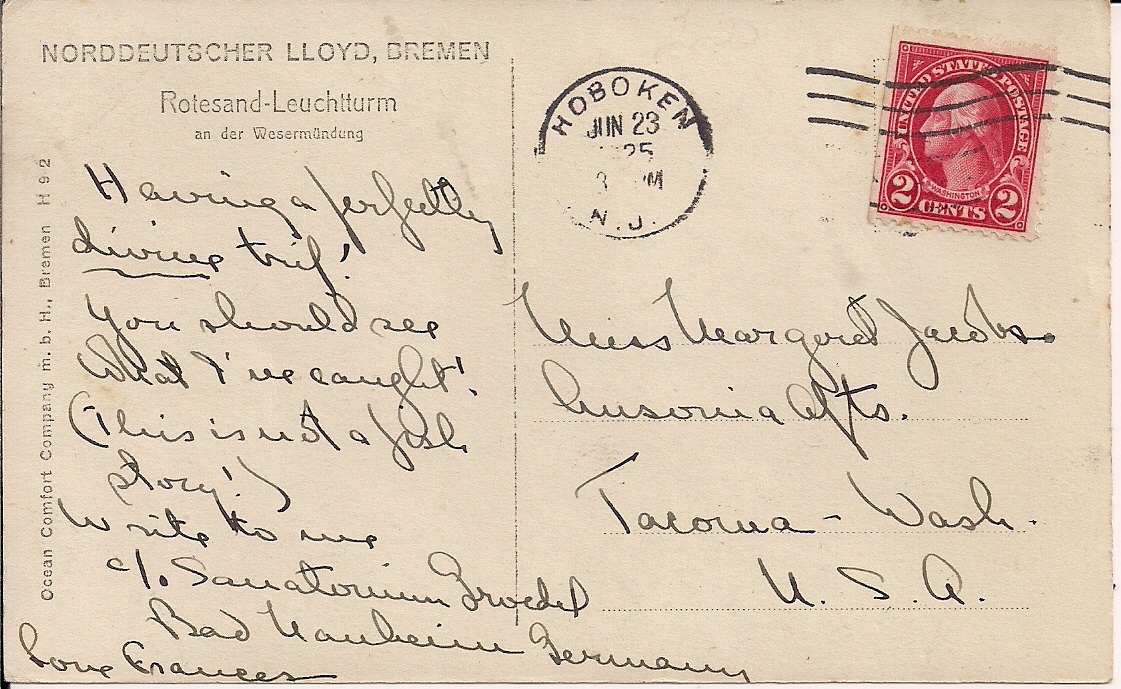 NORDDEUTSCHER LLOYD, BREMEN
Rotesand-Leuchtturm
an der Wesermündung
Ocean Comfort Company m. b. H., Bremen H 92
Having a perfectly
divine trip!
You should see
What I've caught!
(This is not a fish
story!)
Write to me
c/o. Sanatorium Groedel
Bad Nauheim Germany
Love Frances
HOBOKEN
JUN 23
25
3 PM
N.J.
UNITED STATES POSTAGE
WASHINGTON
2 CENTS 2
Miss Margaret Jacobs.
Ansonia Apts.
Tacoma - Wash.
U. S. A.